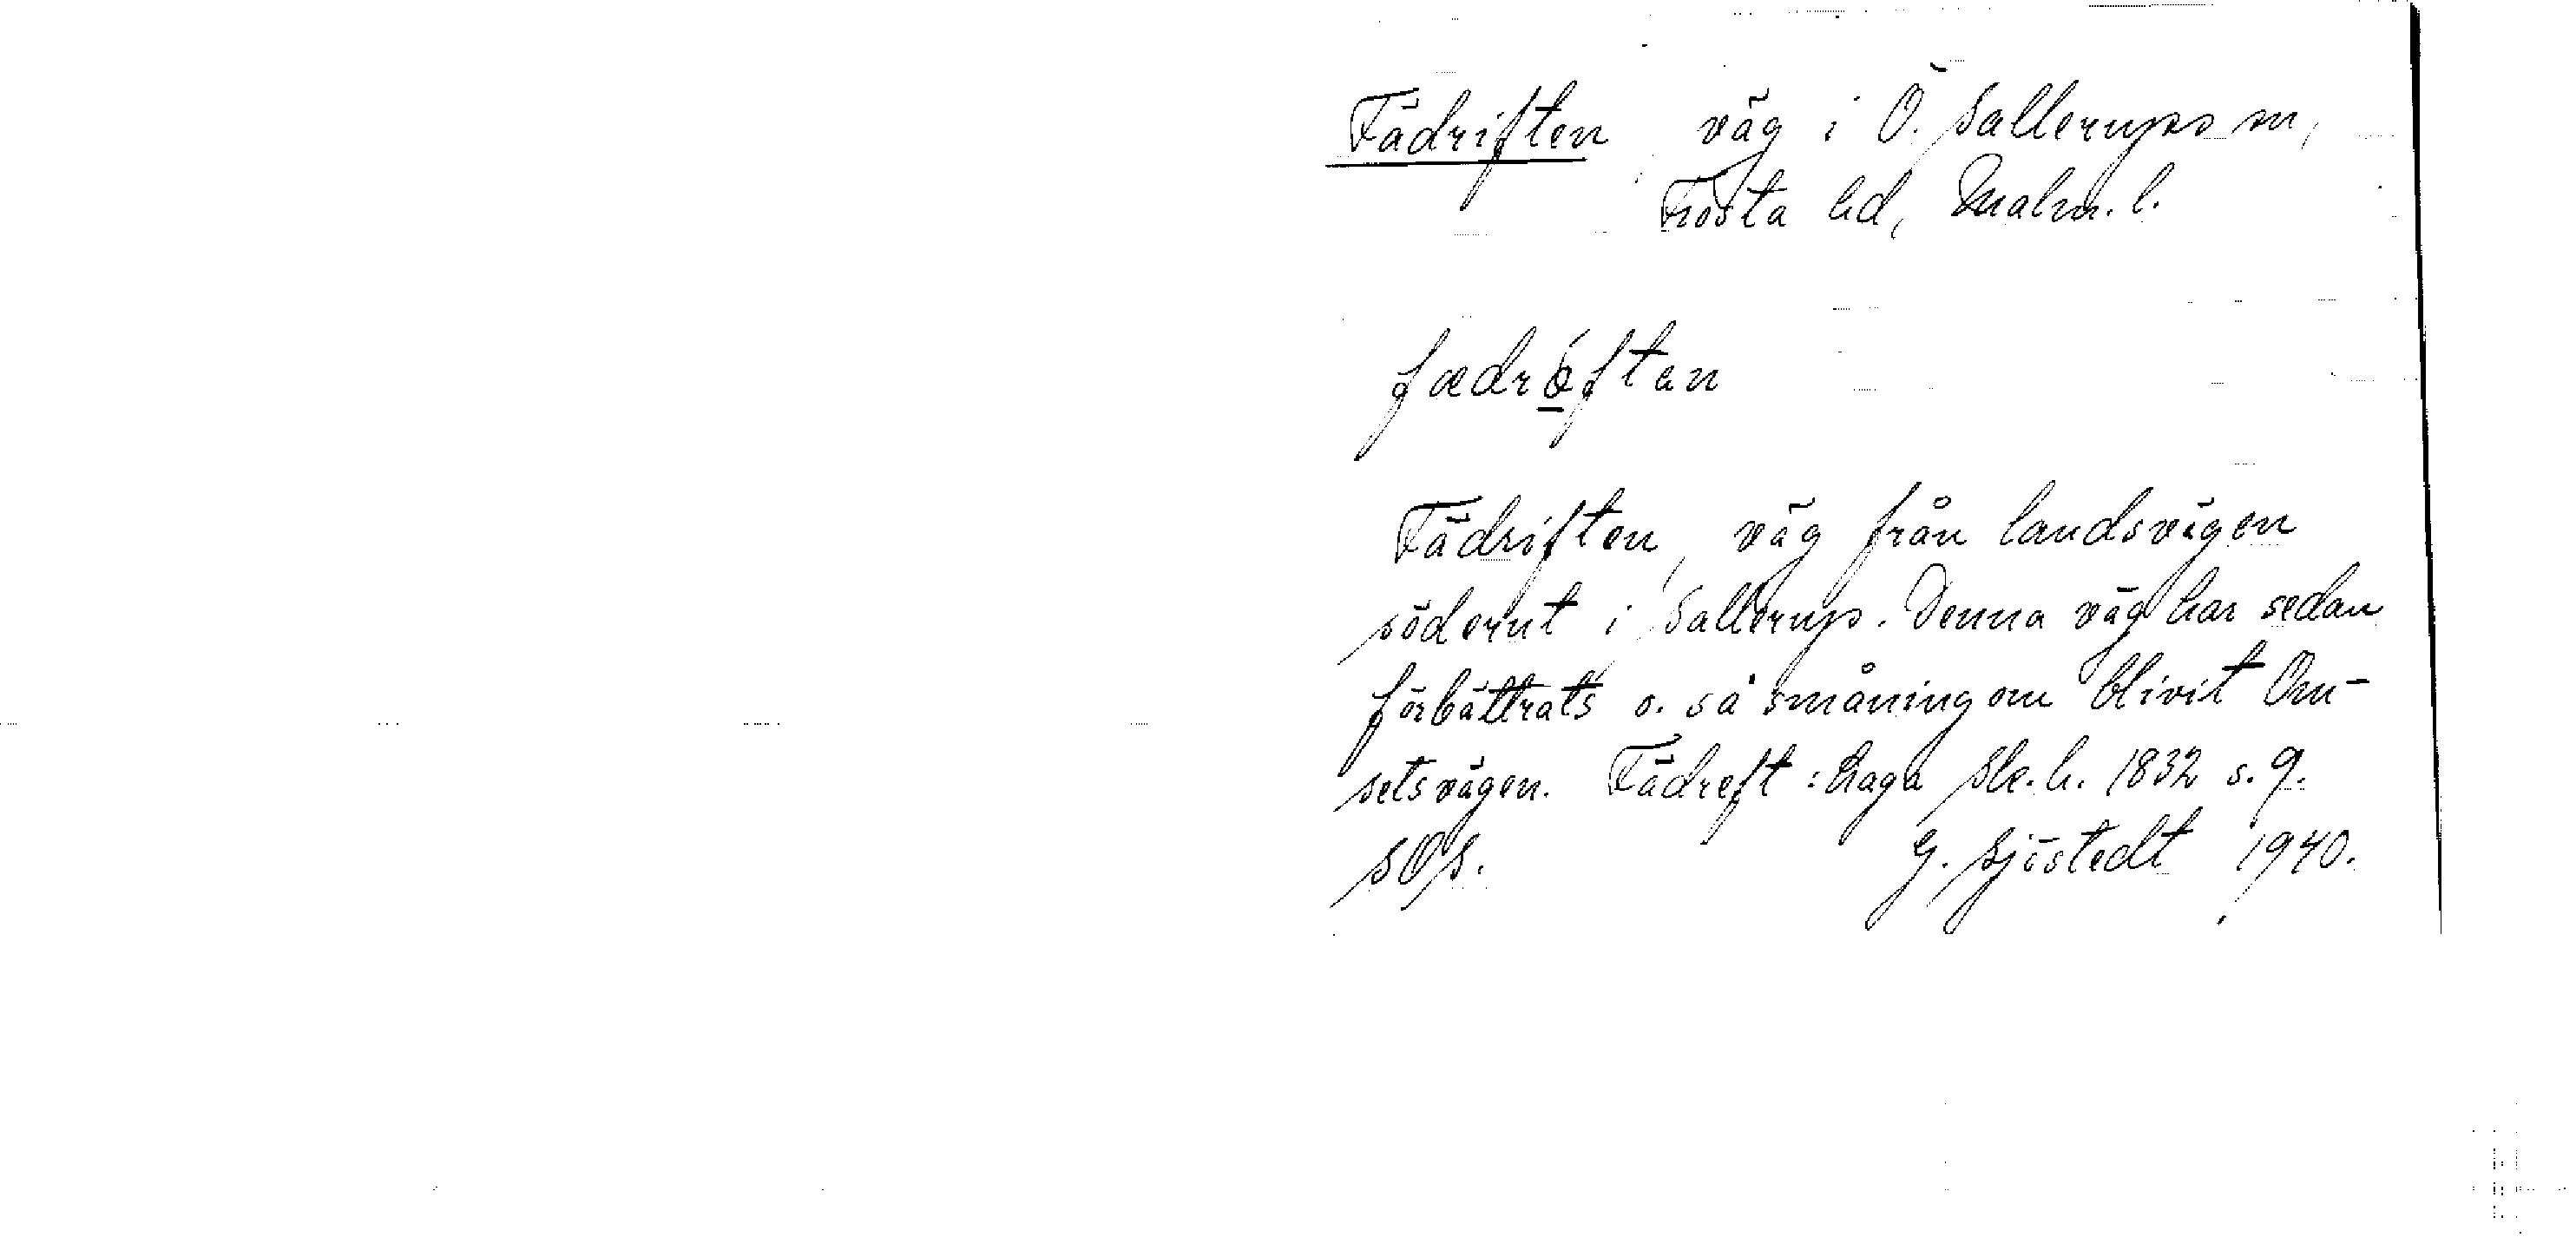 Fädriften väg i Ö. Sallerups sn,
Frosta hd, Malm. l.
fædrǿften
Fädriften, väg från landsvägen
söderut i Sallerup. Denna väg har sedan
förbättrats o. så småningom blivit
setsvägen. Fädreft: Laga Sk. h. 1832 s. 9.
SOS. G. Sjöstedt 1940.